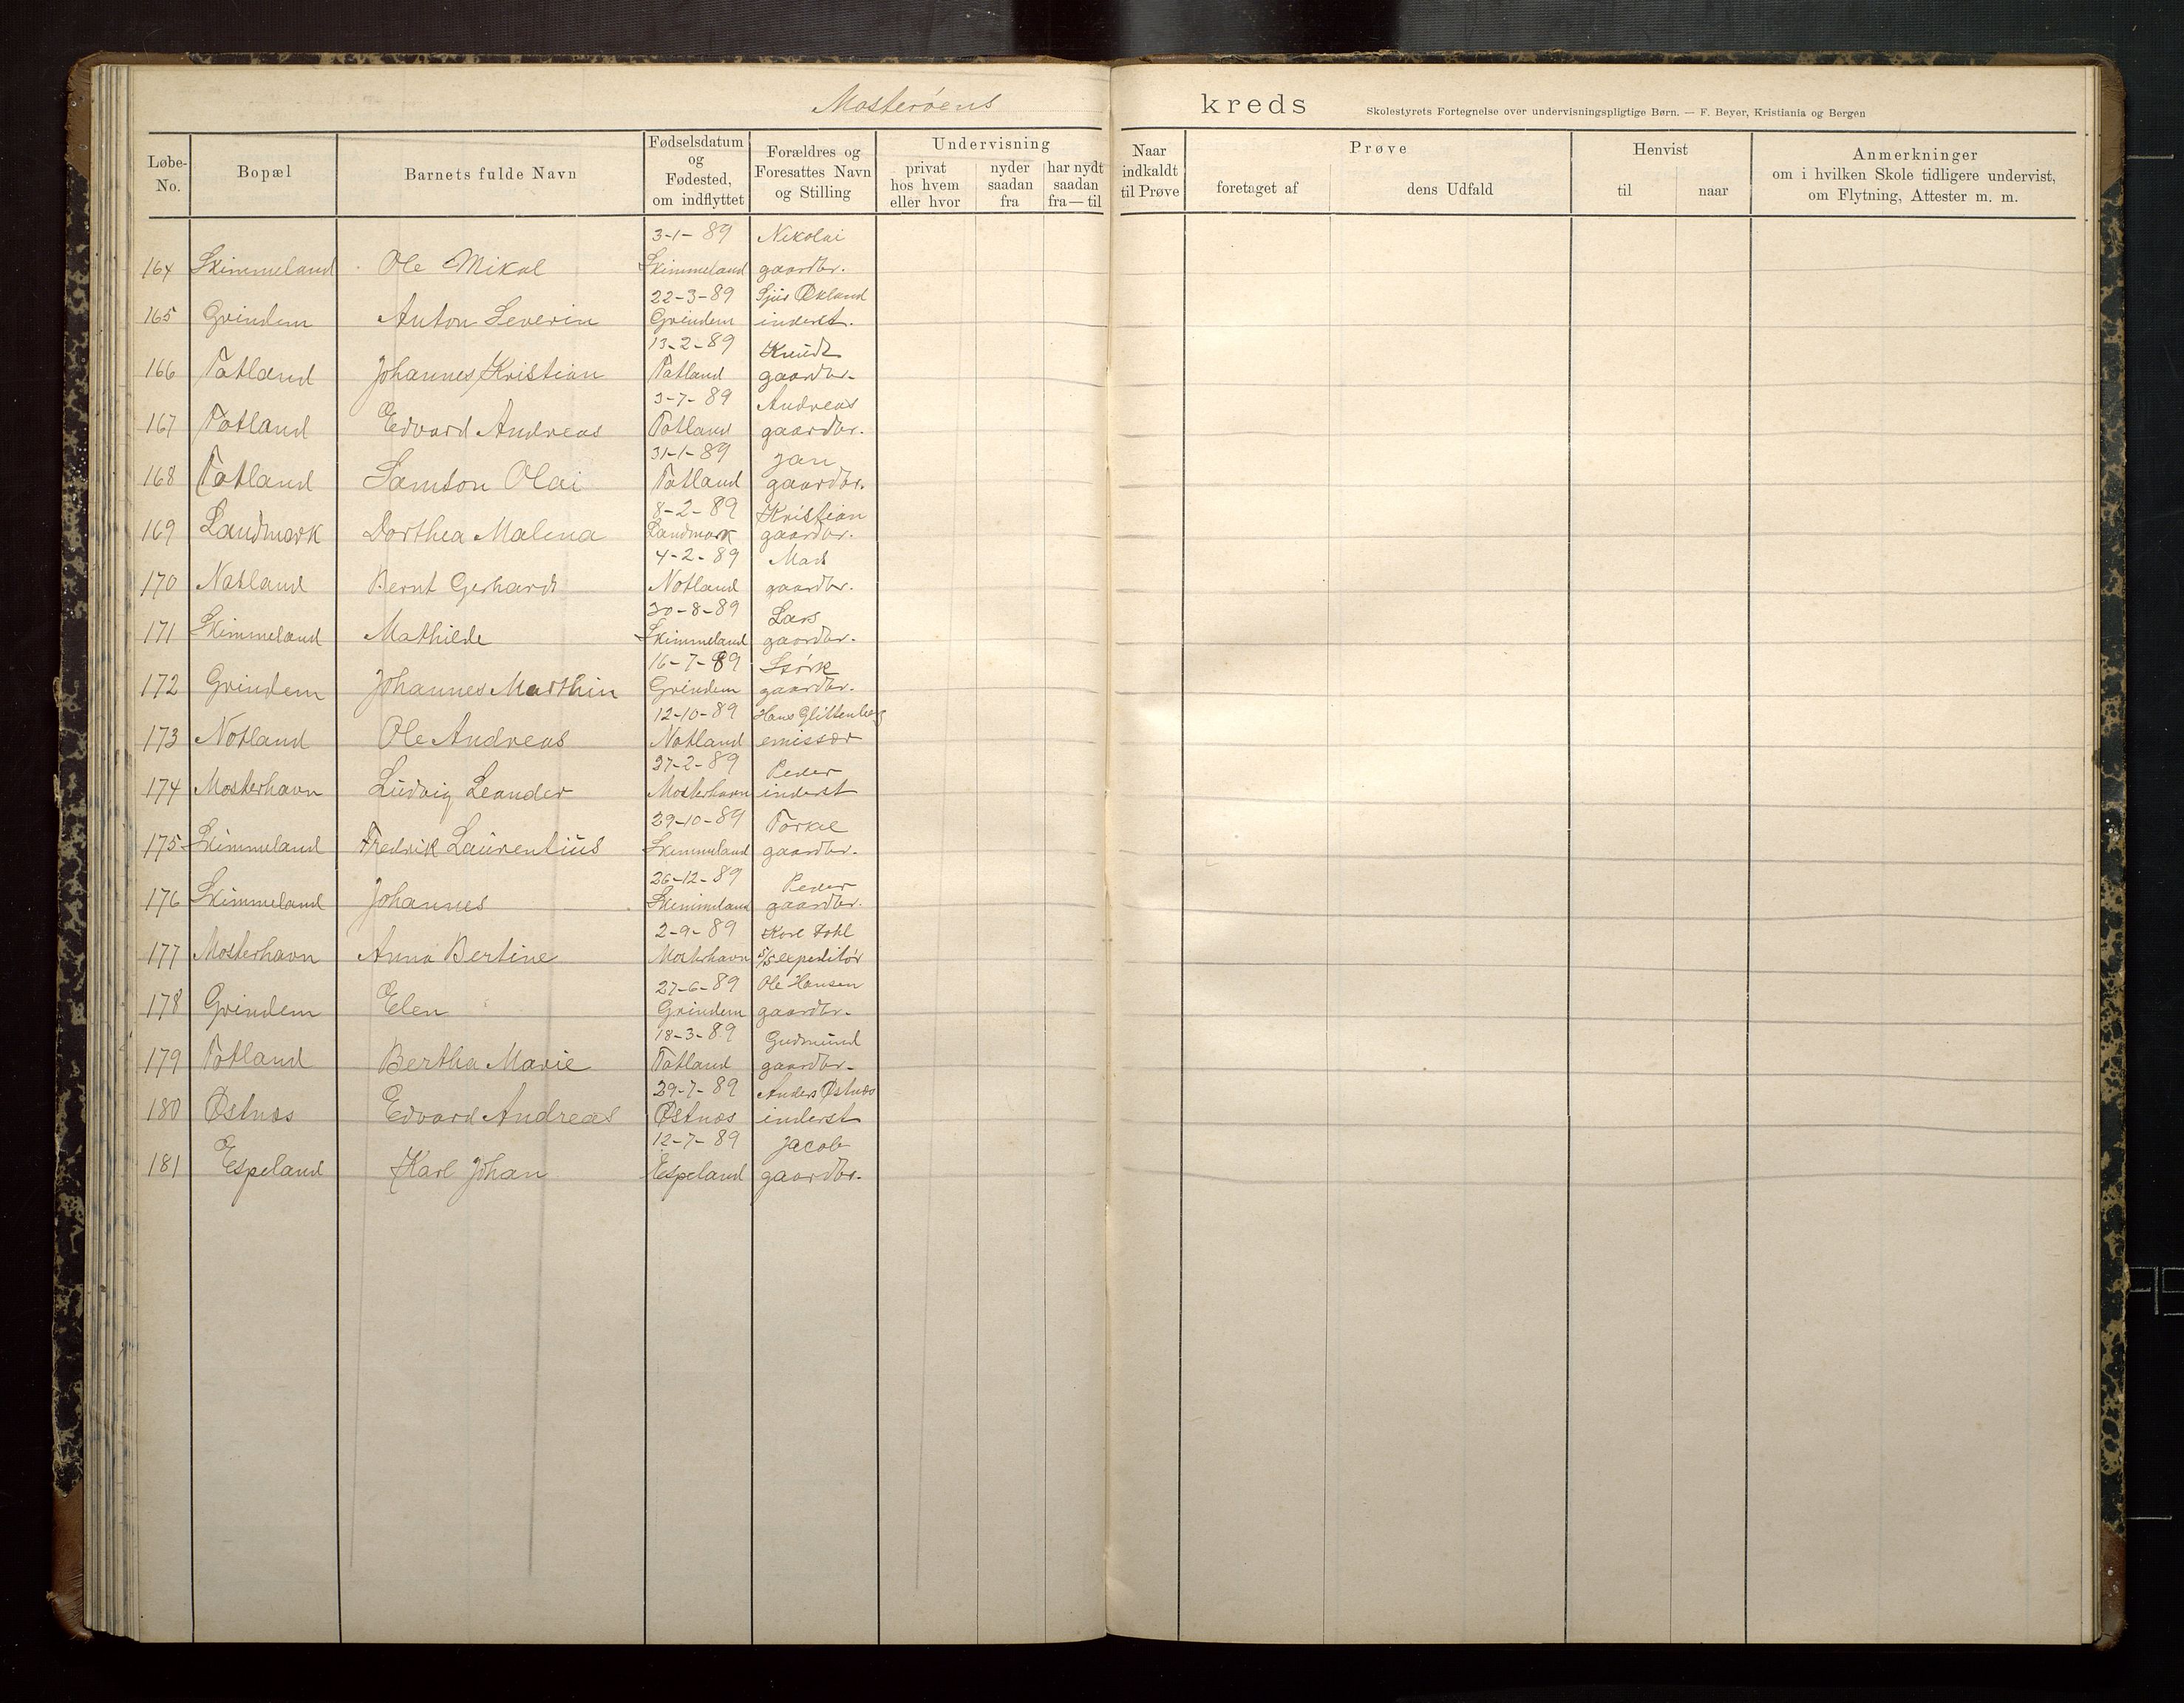 Mosterøens kreds
Skolestyrets Fortegnelse over undervisningspligtige Børn. — F. Beyer, Kristiania og Bergen
Løbe-No. Bopæl Barnets fulde Navn Fødselsdatum og Fødested, om indflyttet Forældres og Foresattes Navn og Stilling Undervisning privat hos hvem eller hvor nyder saadan fra har nydt saadan fra—til Naar indkaldt til Prøve Prøve foretaget af dens Udfald Henvist til naar Anmerkninger om i hvilken Skole tidligere undervist, om Flytning, Attester m. m.
3-1-89 Nikolai
164 Skimmeland Ole Mikal Skimmeland gaardbr.
22-3-89 Sjus Økland
165 Grindem Anton Severin Grindem inderst.
13-2-89 Knudt
166 Totland Johannes Kristian Totland gaardbr.
3-7-89 Andreas
167 Totland Edvard Andreas Totland gaardbr.
31-1-89 Jan
168 Totland Samson Olai Totland gaardbr.
8-2-89 Kristian
169 Landmark Dorthea Malena Landmark gaardbr.
4-2-89 Mads
170 Notland Bernt Gerhard Notland gaardbr.
30-8-89 Lars
171 Skimmeland Mathilde Skimmeland gaardbr.
16-7-89
172 Grindem Johannes Marthin Grindem gaardbr.
12-10-89 Hans Glittenberg
173 Notland Ole Andreas Notland emissær
27-2-89 Peder
174 Mosterhavn Ludvig Leander Mosterhavn inderst
29-10-89 Torkel
175 Skimmeland Fredrik Laurentius Skimmeland gaardbr.
26-12-89 Peder
176 Skimmeland Johannes Skimmeland gaardbr.
2-9-89 Karl
177 Mosterhavn Anna Bertine Mosterhavn S/S expeditør
27-6-89 Ole Hansen
178 Grindem Elen Grindem gaardbr.
18-3-89 Gudmund
179 Totland Bertha Marie Totland gaardbr.
29-7-89 Anders Østnæs
180 Østnæs Edvard Andreas Østnæs inderst
12-7-89 Jacob
181 Espeland Karl Johan Espeland gaardbr.